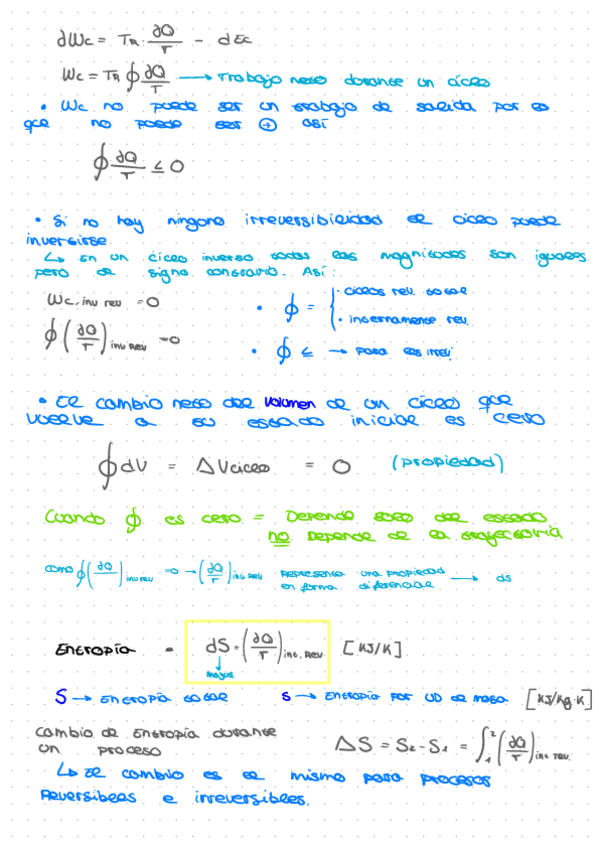 ∂Wc = TR · ∂Q/T − dEc
Wc = TR ∮ ∂Q/T → Trabajo neto durante un ciclo
• Wc no puede ser un trabajo de salida por lo
que no puede ser ⊕ así
∮ ∂Q/T ≤ 0
• Si no hay ninguna irreversibilidad el ciclo puede
invertirse
↳ En un ciclo inverso todas las magnitudes son iguales
pero de signo contrario. Así:
Wc, inv rev = 0
∮ (∂Q/T) inv rev = 0
• ∮ = { · ciclos rev. total
· internamente rev.
• ∮ ≤ → para los irrev.
• El cambio neto del volumen de un ciclo que
vuelve a su estado inicial es cero
∮ dV = ΔVciclo = 0 (propiedad)
Cuando ∮ es cero = Depende solo del estado
no depende de la trayectoria
como ∮ (∂Q/T) inv rev = 0 → (∂Q/T) inv rev Representa una propiedad en forma diferencial → ds
Entropía = dS = (∂Q/T) int. rev [KJ/K]
↓
mayús
S → Entropía total s → Entropía por UD de masa [KJ/Kg·K]
Cambio de Entropía durante
un proceso
ΔS = S2 - S1 = ∫₁² (∂Q/T) int rev.
↳ El cambio es el mismo para procesos
reversibles e irreversibles.